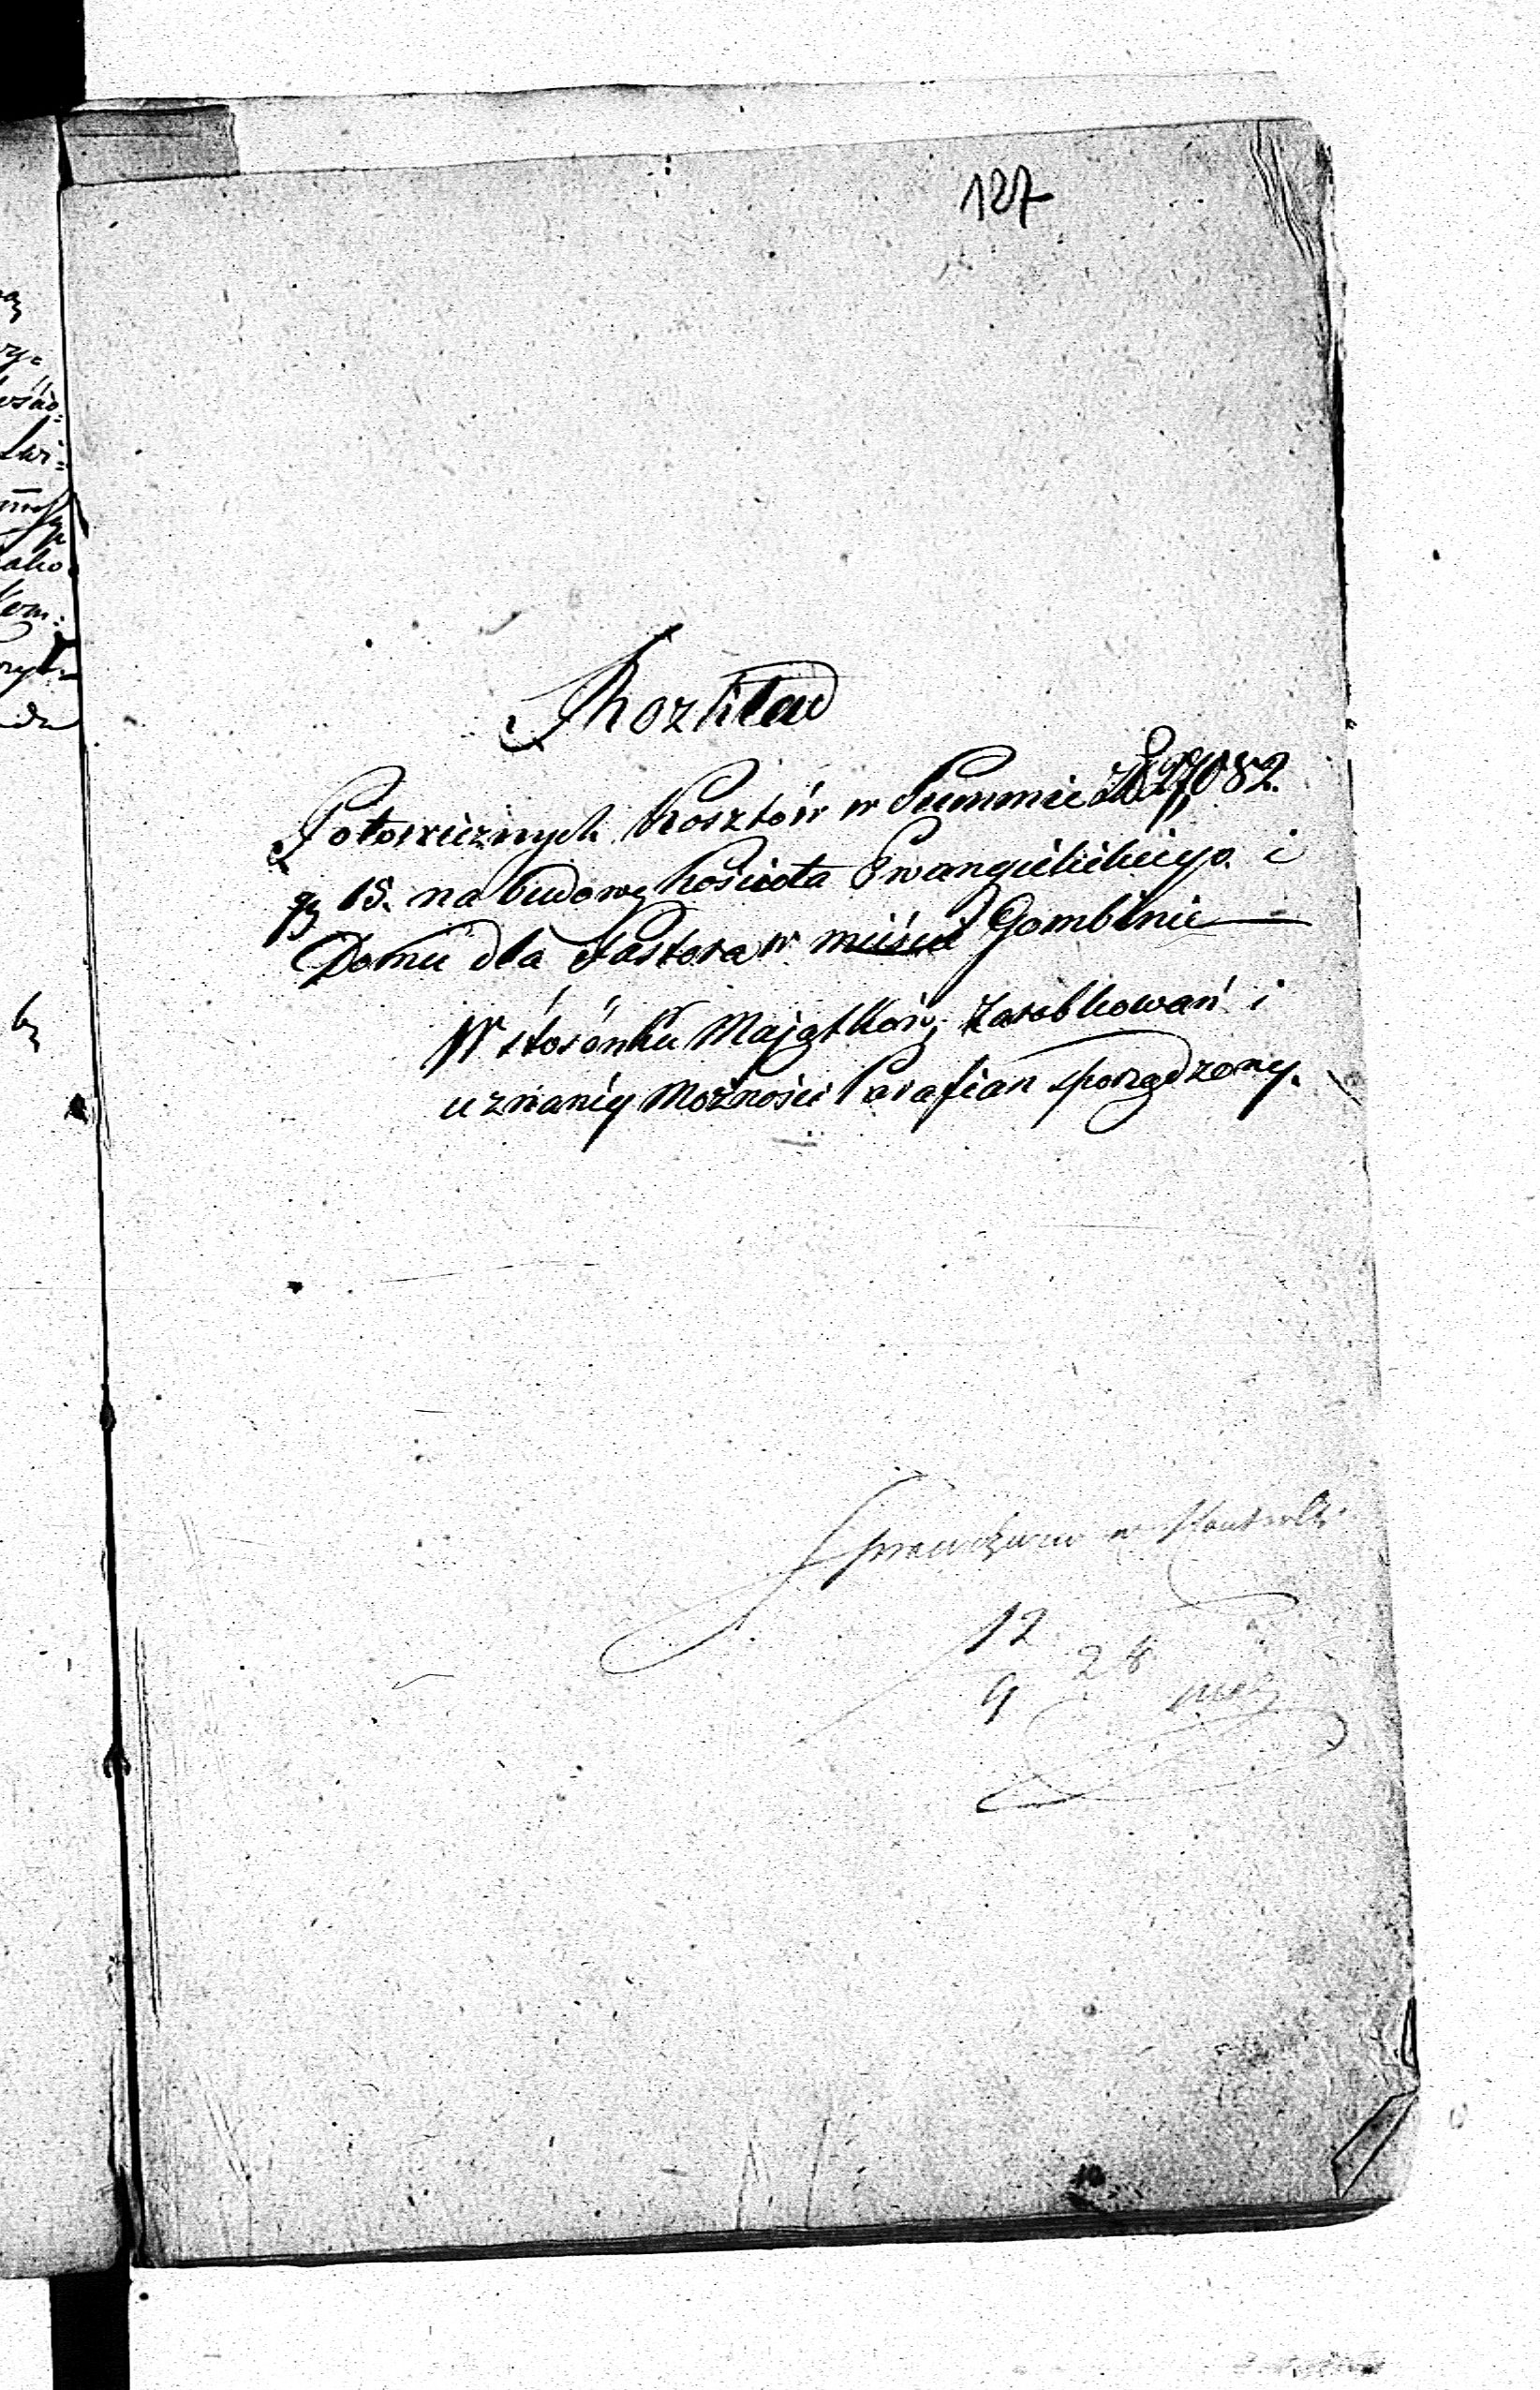 127
Rozkład
Połowicznych Kosztów w Summie 27082.
gr 15. na budowę kościoła Ewangielickiego i
Domu dla Pastora w mieście Gombinie
W stosónku Majątków, Zarobkowań i
uznaniey Możności Parafian sporządzony.
Sprawdzono w Kontroli
12
9 28